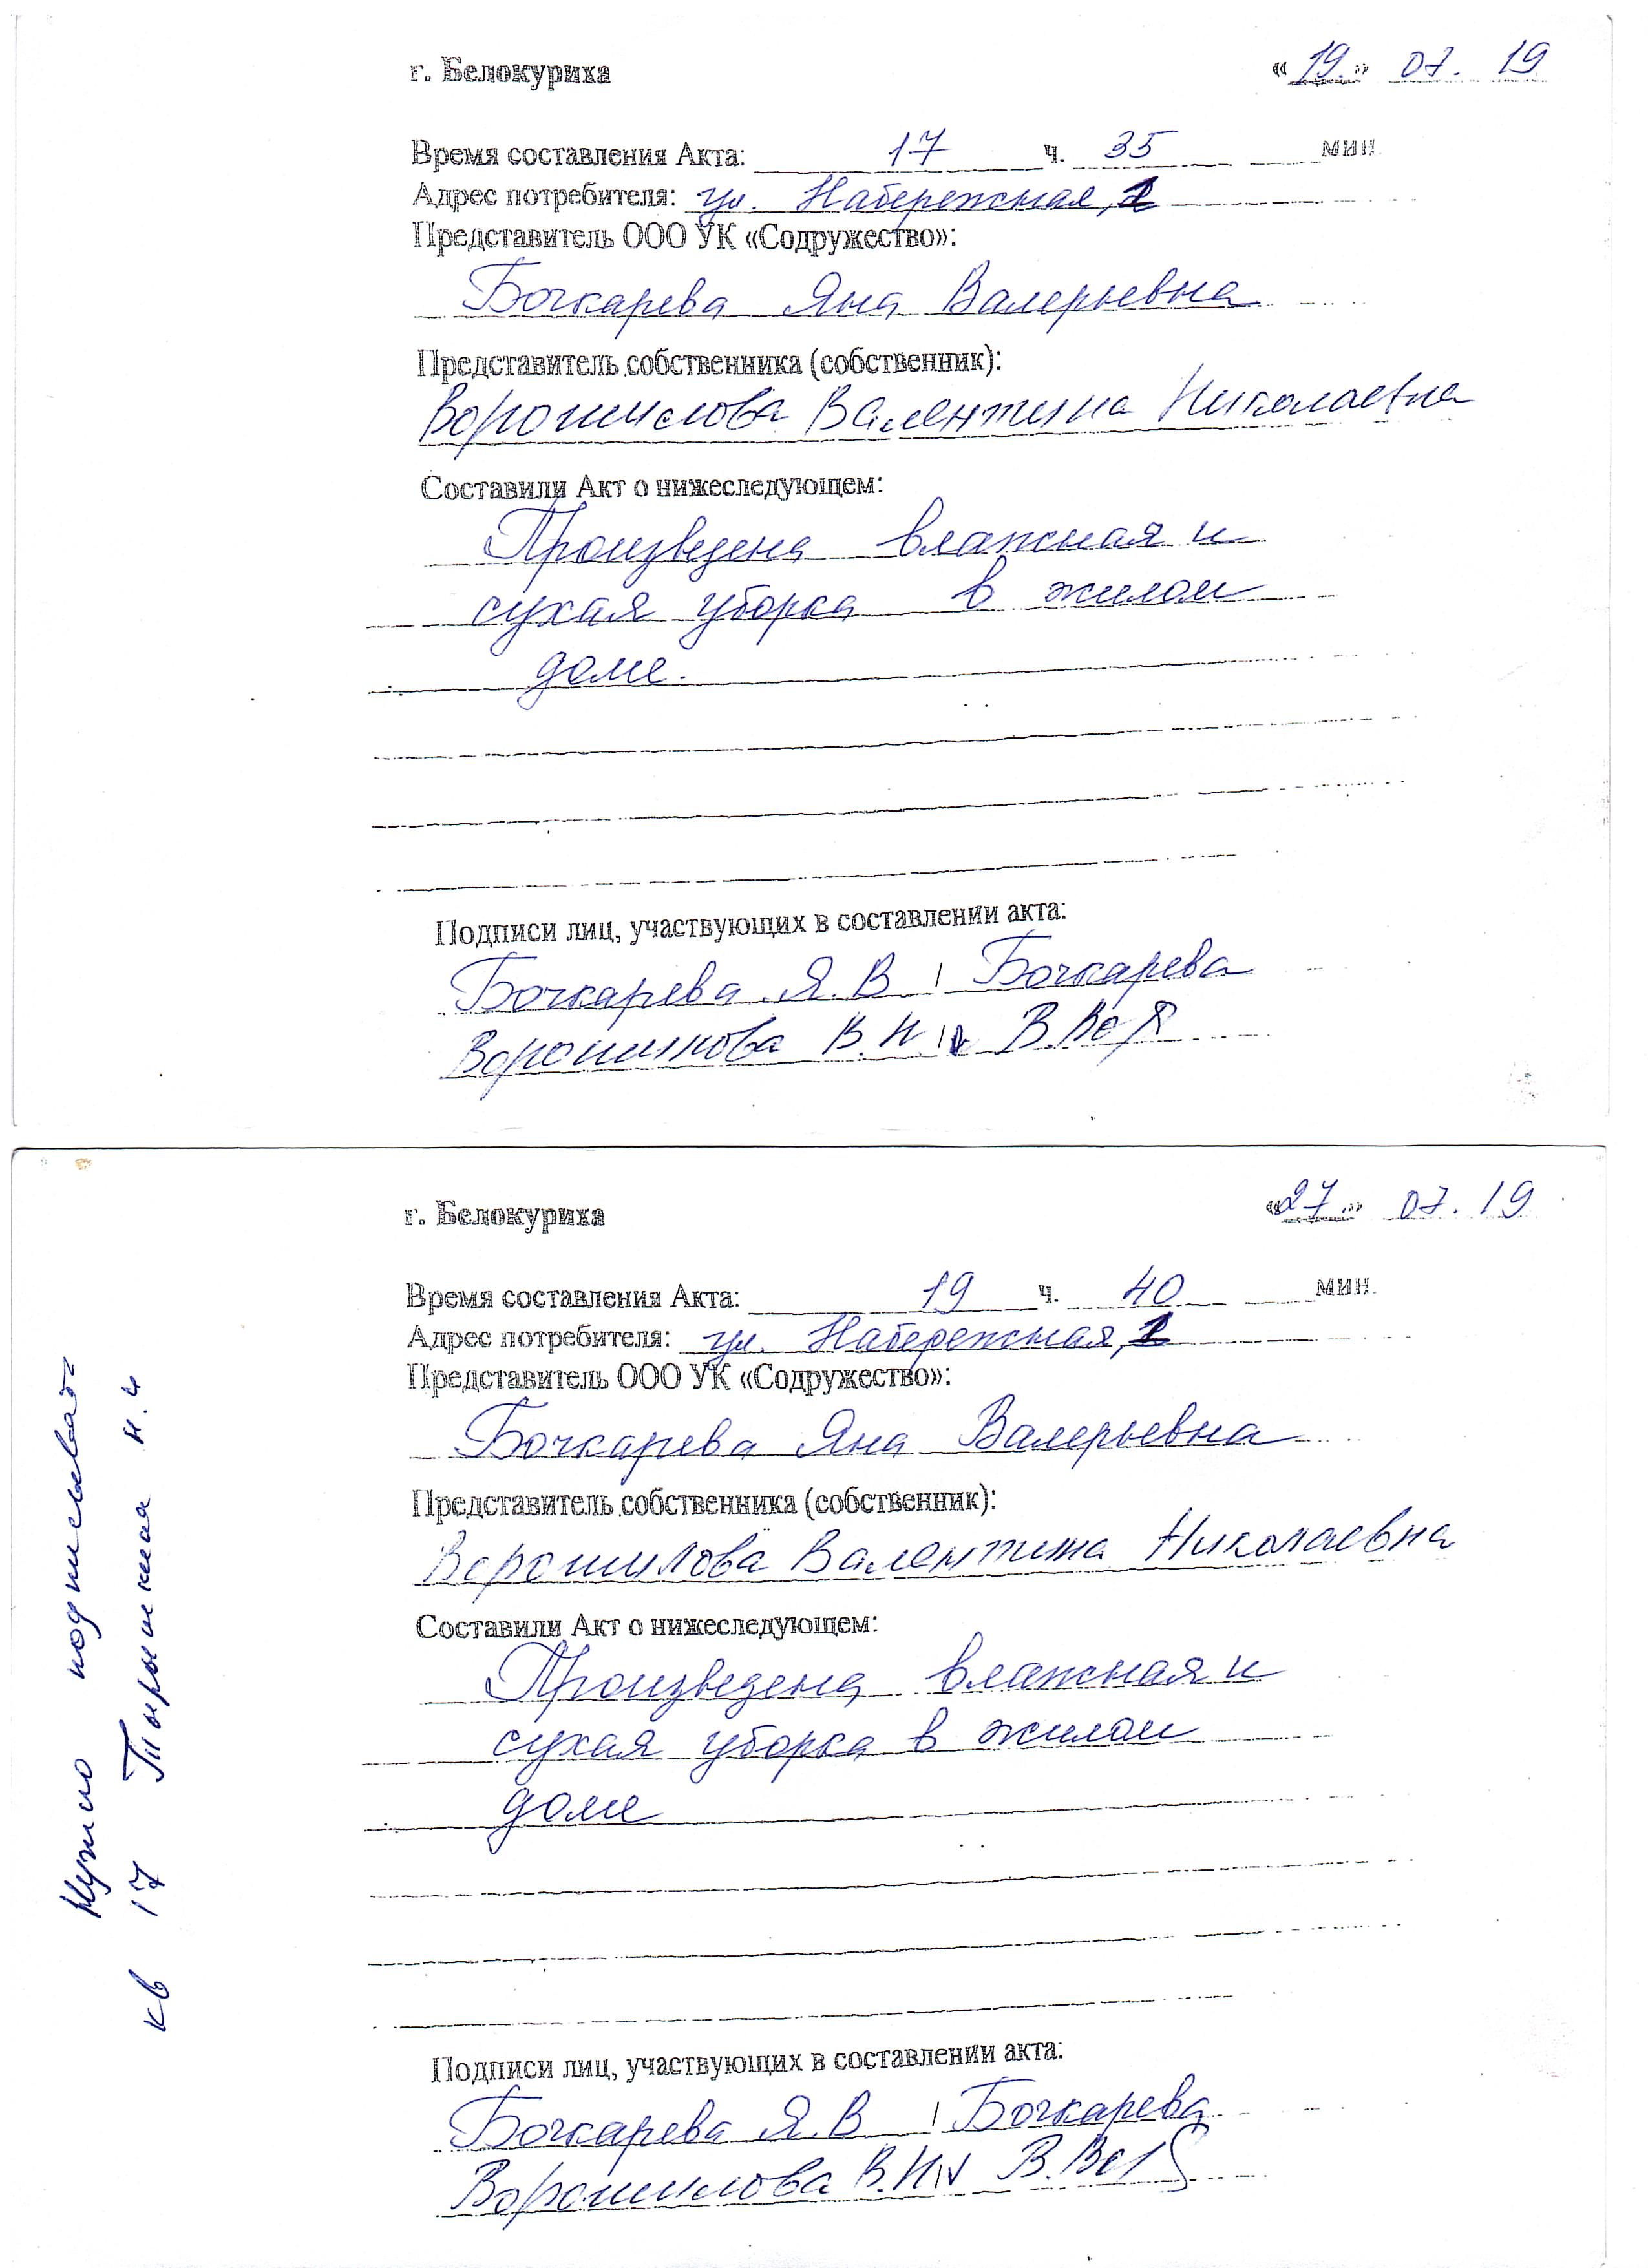 г. Белокуриха «19» 07. 19
Время составления Акта: 17 ч. 35 мин
Адрес потребителя: ул. Набережная, 1
Представитель ООО УК «Содружество»:
Бочкарева Яна Валерьевна
Представитель собственника (собственник):
Ворошилова Валентина Николаевна
Составили Акт о нижеследующем:
Произведена влажная и
сухая уборка в жилом
доме.
Подписи лиц, участвующих в составлении акта:
Бочкарева Я.В / Бочкарева
Ворошилова В.Н.
г. Белокуриха «27» 07. 19
Время составления Акта: 19 ч. 40 мин.
Адрес потребителя: ул. Набережная, 1
Представитель ООО УК «Содружество»:
Бочкарева Яна Валерьевна
Представитель собственника (собственник):
Ворошилова Валентина Николаевна
Составили Акт о нижеследующем:
Произведена влажная и
сухая уборка в жилом
доме
Подписи лиц, участвующих в составлении акта:
Бочкарева Я.В / Бочкарева
Ворошилова В.Н
Нужно подписывать
кв 17